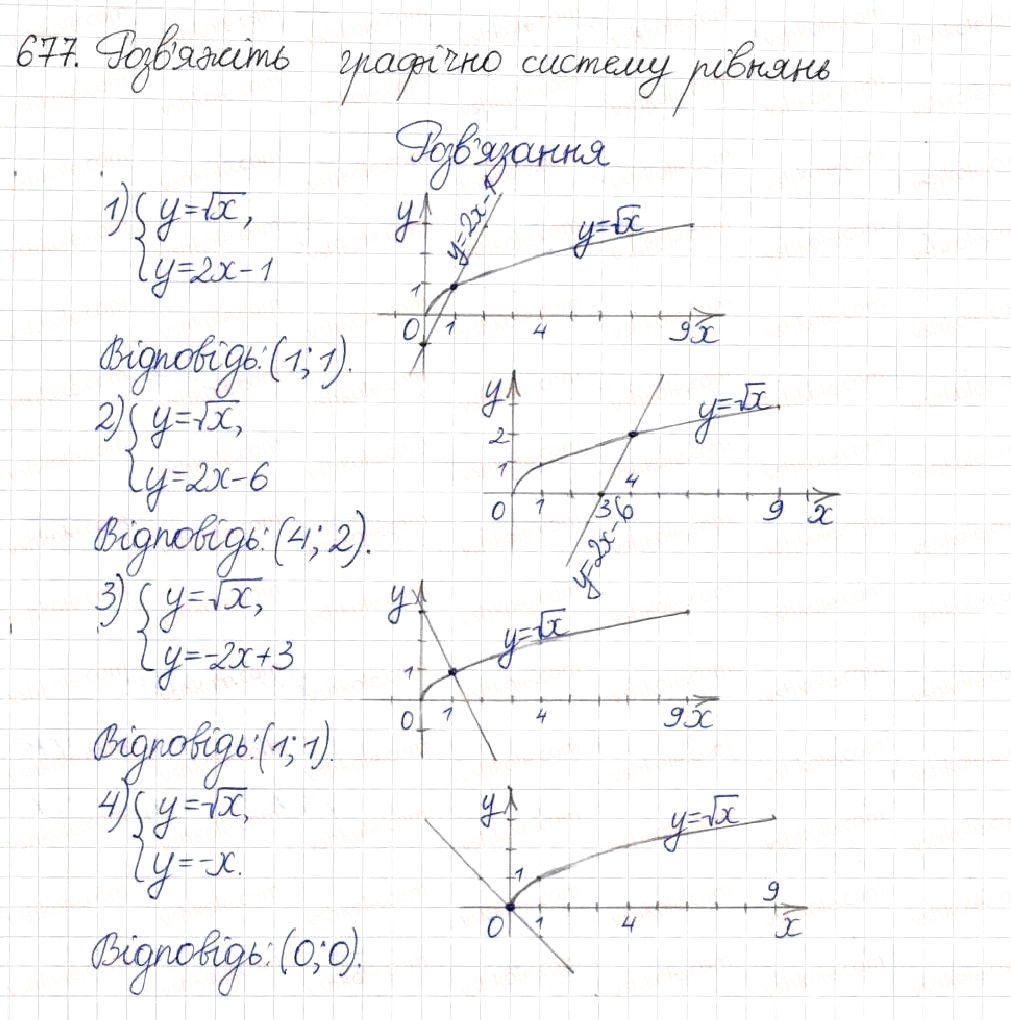 677. Розв'яжіть графічно систему рівнянь
Розв'язання
1) { y=√x,
y=2x-1
y
y=2x-1
y=√x
1
0 1 4 9 x
Відповідь: (1; 1).
2) { y=√x,
y=2x-6
y
y=√x
2
1
4
0 1 3 6 9 x
y=2x-6
Відповідь: (4; 2).
3) { y=√x,
y=-2x+3
y
y=√x
1
0 1 4 9 x
Відповідь: (1; 1).
4) { y=√x,
y=-x.
y
y=√x
1
9
0 1 4 x
Відповідь: (0; 0).